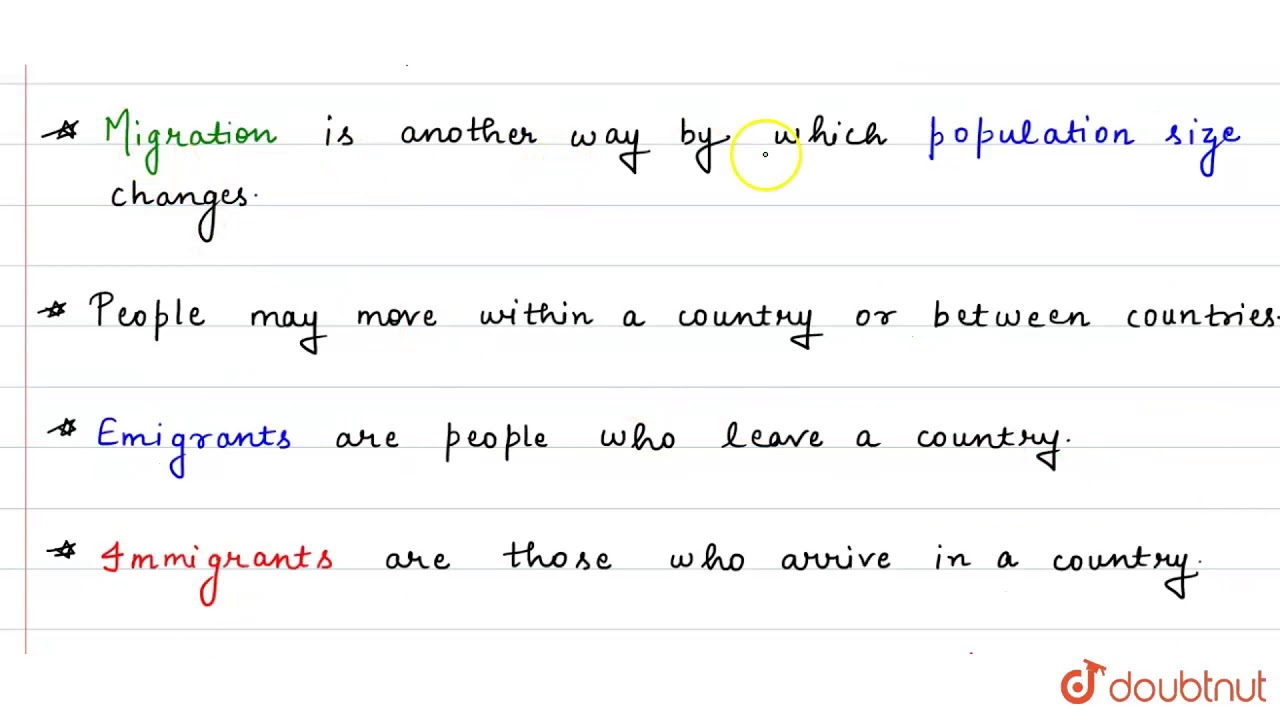 Migration is another way by which population size
changes.
People may move within a country or between countries.
Emigrants are people who leave a country.
Immigrants are those who arrive in a country.
doubtnut